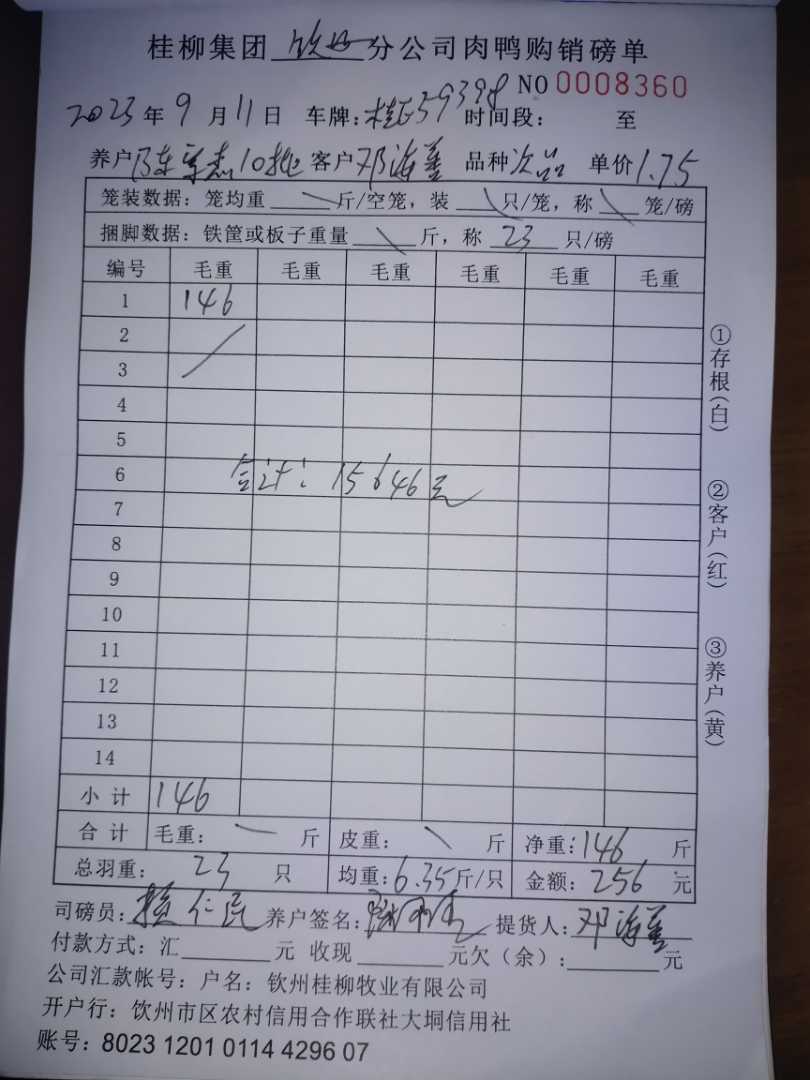 桂柳集团 钦州 分公司肉鸭购销磅单
NO 0008360
2023 年 9 月 11 日 车牌: 桂 59398 时间段: 至
养户 陈 10批 客户 邓海 品种 次品 单价 1.75
笼装数据: 笼均重 斤/空笼, 装 只/笼, 称 笼/磅
捆脚数据: 铁筐或板子重量 斤, 称 23 只/磅
编号 毛重 毛重 毛重 毛重 毛重 毛重
1 146
2
3
4
5
6
合计: 15646元
7
8
9
10
11
12
13
14
小计 146
合计 毛重: 斤 皮重: 斤 净重: 146 斤
总羽重: 23 只 均重: 6.35 斤/只 金额: 256 元
司磅员: 仁民 养户签名: 提货人: 邓海
付款方式: 汇 元 收现 元欠(余): 元
公司汇款帐号: 户名: 钦州桂柳牧业有限公司
开户行: 饮州市区农村信用合作联社大垌信用社
账号: 8023 1201 0114 4296 07
①存根(白)
②客户(红)
③养户(黄)